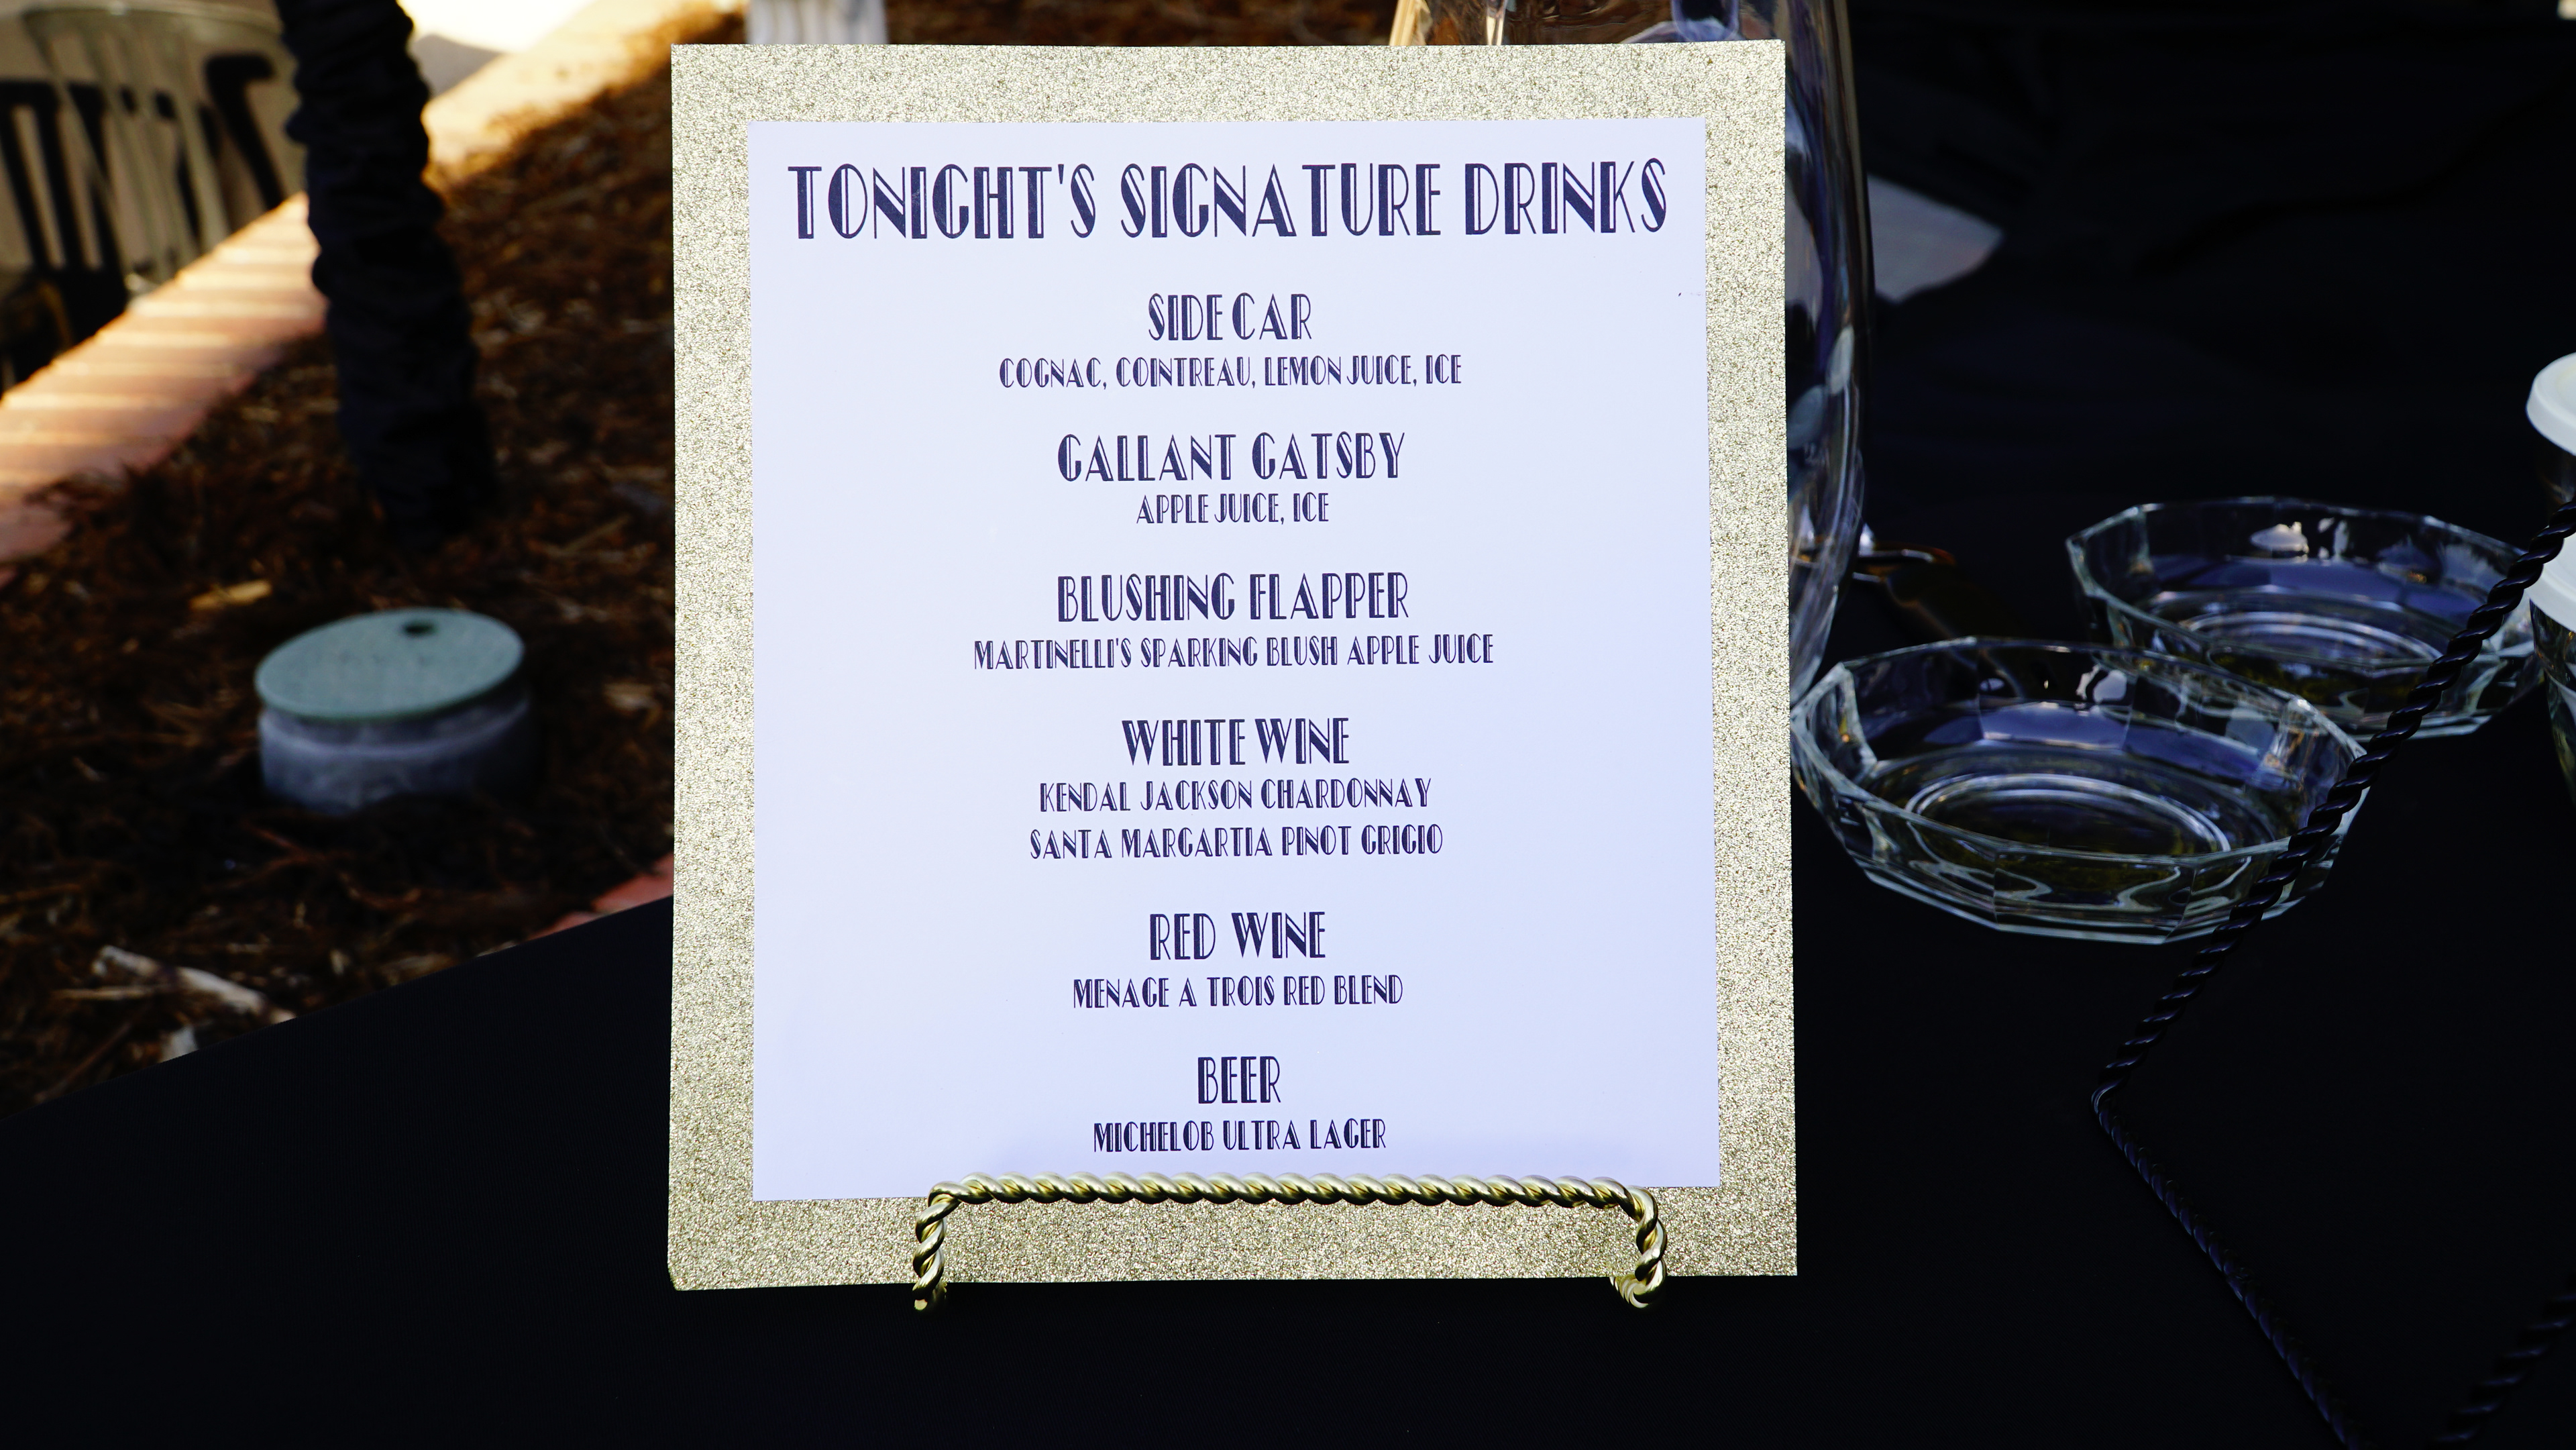 TONIGHT'S SIGNATURE DRINKS
SIDE CAR
COGNAC, COINTREAU, LEMON JUICE, ICE
GALLANT GATSBY
APPLE JUICE, ICE
BLUSHING FLAPPER
MARTINELLI'S SPARKING BLUSH APPLE JUICE
WHITE WINE
KENDAL JACKSON CHARDONNAY
SANTA MARGARTIA PINOT GRIGIO
RED WINE
MENAGE A TROIS RED BLEND
BEER
MICHELOB ULTRA LAGER